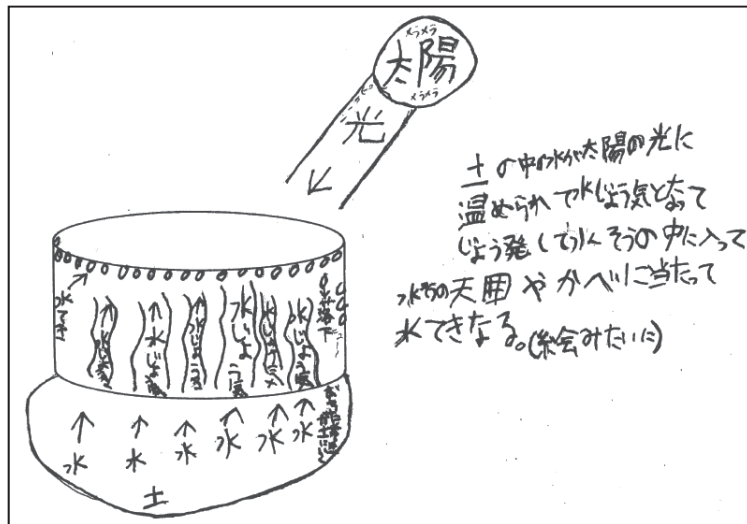 メラメラ
太陽
メラメラ
光
土の中の水が太陽の光に
温められて水じょう気となって
じょう発して水そうの中に入って
水そうの天囲やかべに当たって
水てきなる。(絵会みたいに)
水てき
落下
水じょう気
水じょう気
水じょう気
水じょう気
水じょう気
水
水
水
水
水
水
土